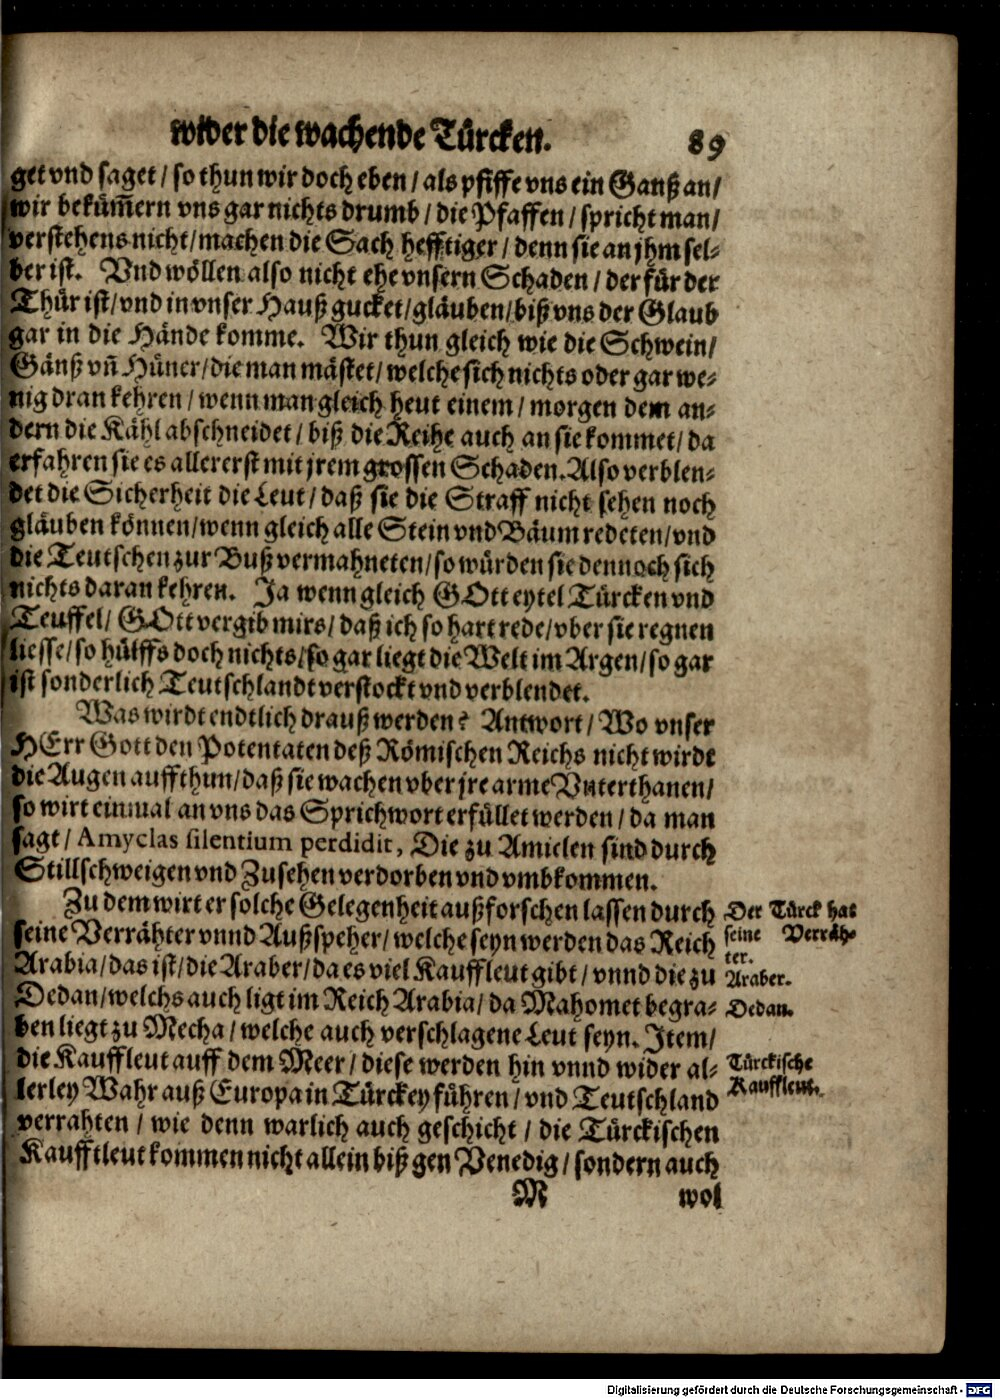 wider die wachende Türcken. 89
get vnd saget / so thun wir doch eben / als pfiffe vns ein Ganß an /
wir bekům̃ern vns gar nichts drumb / die Pfaffen / spricht man /
verstehens nicht / machen die Sach hefftiger / denn sie an jhm sel-
ber ist. Vnd wöllen also nicht ehe vnsern Schaden / der für der
Thür ist / vnd in vnser Hauß gucket / gläuben / biß vns der Glaub
gar in die Hände komme. Wir thun gleich wie die Schwein /
Gänß vñ Hüner / die man mästet / welche sich nichts oder gar we-
nig dran kehren / wenn man gleich heut einem / morgen dem an-
dern die Kähl abschneidet / biß die Reihe auch an sie kommet / da
erfahren sie es allererst mit jrem grossen Schaden. Also verblen-
det die Sicherheit die Leut / daß sie die Straff nicht sehen noch
gläuben können / wenn gleich alle Stein vnd Bäum redeten / vnd
die Teutschen zur Buß vermahneten / so würden sie dennoch sich
nichts daran kehren. Ja wenn gleich GOtt eytel Türcken vnd
Teuffel / GOtt vergib mirs / daß ich so hart rede / vber sie regnen
liesse / so hülffs doch nichts / so gar liegt die Welt im Argen / so gar
ist sonderlich Teutschlandt verstockt vnd verblendet.
Was wirdt endtlich drauß werden? Antwort / Wo vnser
HErr Gott den Potentaten deß Römischen Reichs nicht wirdt
die Augen auffthun / daß sie wachen vber jre arme Vnterthanen /
so wirt einmal an vns das Sprichwort erfüllet werden / da man
sagt / Amyclas silentium perdidit, Die zu Amiclen sind durch
Stillschweigen vnd Zusehen verdorben vnd vmbkommen.
Zu dem wirt er solche Gelegenheit außforschen lassen durch
seine Verrähter vnnd Außspeher / welche seyn werden das Reich
Arabia / das ist / die Araber / da es viel Kauffleut gibt / vnnd die zu
Dedan / welchs auch ligt im Reich Arabia / da Mahomet begra-
ben liegt zu Mecha / welche auch verschlagene Leut seyn. Item /
die Kauffleut auff dem Meer / diese werden hin vnnd wider al-
lerley Wahr auß Europa in Türckey führen / vnd Teutschland
verrahten / wie denn warlich auch geschicht / die Türckischen
Kauffleut kommen nicht allein biß gen Venedig / sondern auch
M wol
Der Türck hat
seine Verräh-
ter.
Araber.
Dedan.
Türckische
Kauffleut.
Digitalisierung gefördert durch die Deutsche Forschungsgemeinschaft - DFG